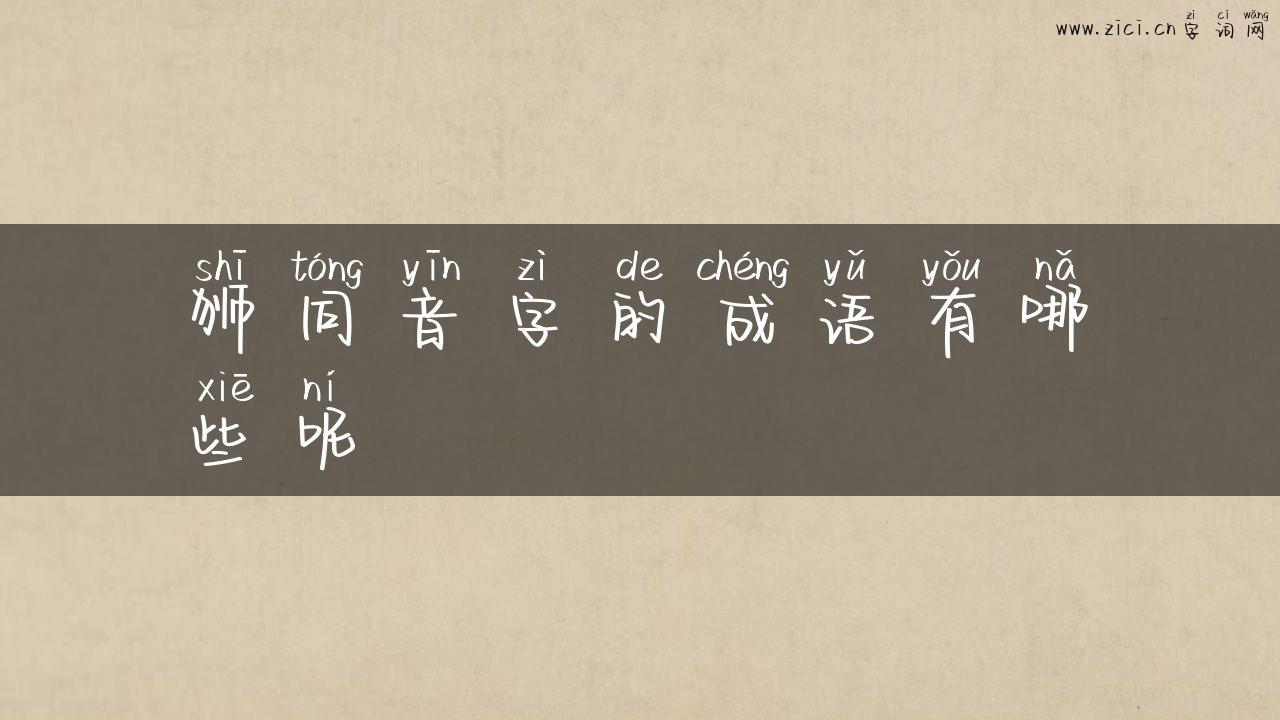 zì cí wǎng
www.zici.cn 字词网
shī tóng yīn zì de chéng yǔ yǒu nǎ
狮同音字的成语有哪
xiē ní
些呢